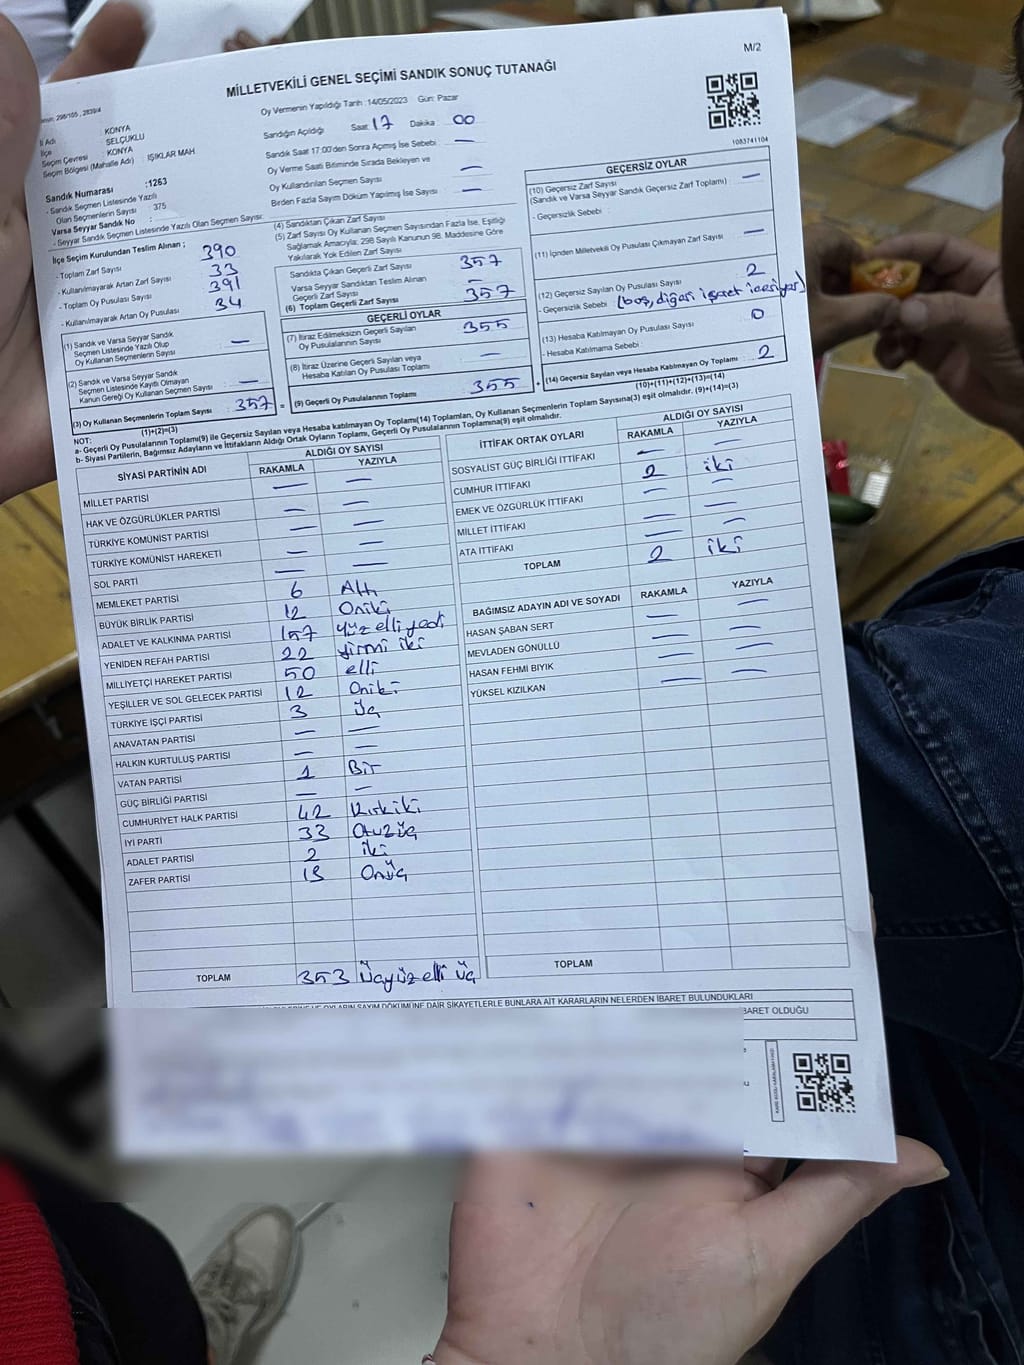 M/2
MİLLETVEKİLİ GENEL SEÇİMİ SANDIK SONUÇ TUTANAĞI
Oy Vermenin Yapıldığı Tarih :14/05/2023 Gün: Pazar
İl Adı : KONYA
İlçe : SELÇUKLU
Seçim Çevresi : KONYA
Seçim Bölgesi (Mahalle Adı) : IŞIKLAR MAH
Sandık Numarası :1263
- Sandık Seçmen Listesinde Yazılı
Olan Seçmenlerin Sayısı : 375
Varsa Seyyar Sandık No :
- Seyyar Sandık Seçmen Listesinde Yazılı Olan Seçmen Sayısı:
Sandığın Açıldığı Saat 17 Dakika 00
Sandık Saat 17:00'den Sonra Açılmış İse Sebebi —
Oy Verme Saati Bitiminde Sırada Bekleyen ve
Oy Kullandırılan Seçmen Sayısı —
Birden Fazla Sayım Döküm Yapılmış İse Sayısı —
1083741104
İlçe Seçim Kurulundan Teslim Alınan ;
- Toplam Zarf Sayısı 390
- Kullanılmayarak Artan Zarf Sayısı 33
- Toplam Oy Pusulası Sayısı 391
- Kullanılmayarak Artan Oy Pusulası 34
(1) Sandık ve Varsa Seyyar Sandık
Seçmen Listesinde Yazılı Olup
Oy Kullanan Seçmenlerin Sayısı —
(2) Sandık ve Varsa Seyyar Sandık
Seçmen Listesinde Kayıtlı Olmayan
Kanun Gereği Oy Kullanan Seçmen Sayısı : —
(3) Oy Kullanan Seçmenlerin Toplam Sayısı : 357 =
(1)+(2)=(3)
(4) Sandıktan Çıkan Zarf Sayısı
(5) Zarf Sayısı Oy Kullanan Seçmen Sayısından Fazla İse, Eşitliği
Sağlamak Amacıyla; 298 Sayılı Kanunun 98. Maddesine Göre
Yakılarak Yok Edilen Zarf Sayısı
Sandıkta Çıkan Geçerli Zarf Sayısı 357
Varsa Seyyar Sandıktan Teslim Alınan
Geçerli Zarf Sayısı —
(6) Toplam Geçerli Zarf Sayısı 357
GEÇERLİ OYLAR
(7) İtiraz Edilmeksizin Geçerli Sayılan
Oy Pusulalarının Sayısı 355
(8) İtiraz Üzerine Geçerli Sayılan veya
Hesaba Katılan Oy Pusulası Toplamı —
(9) Geçerli Oy Pusulalarının Toplamı 355 +
GEÇERSİZ OYLAR
(10) Geçersiz Zarf Sayısı
(Sandık ve Varsa Seyyar Sandık Geçersiz Zarf Toplamı) —
- Geçersizlik Sebebi :
(11) İçinden Milletvekili Oy Pusulası Çıkmayan Zarf Sayısı —
(12) Geçersiz Sayılan Oy Pusulası Sayısı 2
- Geçersizlik Sebebi : (boş, diğeri işaret içeriyor)
(13) Hesaba Katılmayan Oy Pusulası Sayısı 0
- Hesaba Katılmama Sebebi :
(14) Geçersiz Sayılan veya Hesaba Katılmayan Oy Toplamı : 2
(10)+(11)+(12)+(13)=(14)
NOT:
a- Geçerli Oy Pusulalarının Toplamı(9) ile Geçersiz Sayılan veya Hesaba katılmayan Oy Toplamı(14) Toplamları, Oy Kullanan Seçmenlerin Toplam Sayısına(3) eşit olmalıdır. (9)+(14)=(3)
b- Siyasi Partilerin, Bağımsız Adayların ve İttifakların Aldığı Ortak Oyların Toplamı, Geçerli Oy Pusulalarının Toplamına(9) eşit olmalıdır.
SİYASİ PARTİNİN ADI ALDIĞI OY SAYISI
RAKAMLA YAZIYLA
MİLLET PARTİSİ — —
HAK VE ÖZGÜRLÜKLER PARTİSİ — —
TÜRKİYE KOMÜNİST PARTİSİ — —
TÜRKİYE KOMÜNİST HAREKETİ — —
SOL PARTİ — —
MEMLEKET PARTİSİ 6 Altı
BÜYÜK BİRLİK PARTİSİ 12 Oniki
ADALET VE KALKINMA PARTİSİ 157 yüz elli yedi
YENİDEN REFAH PARTİSİ 22 yirmi iki
MİLLİYETÇİ HAREKET PARTİSİ 50 elli
YEŞİLLER VE SOL GELECEK PARTİSİ 12 Oniki
TÜRKİYE İŞÇİ PARTİSİ 3 Üç
ANAVATAN PARTİSİ — —
HALKIN KURTULUŞ PARTİSİ — —
VATAN PARTİSİ 1 Bir
GÜÇ BİRLİĞİ PARTİSİ — —
CUMHURİYET HALK PARTİSİ 42 Kırkiki
İYİ PARTİ 33 Otuzüç
ADALET PARTİSİ 2 iki
ZAFER PARTİSİ 13 Onüç
TOPLAM 353 Üçyüzelli üç
İTTİFAK ORTAK OYLARI ALDIĞI OY SAYISI
RAKAMLA YAZIYLA
SOSYALİST GÜÇ BİRLİĞİ İTTİFAKI — —
CUMHUR İTTİFAKI 2 iki
EMEK VE ÖZGÜRLÜK İTTİFAKI — —
MİLLET İTTİFAKI — —
ATA İTTİFAKI — —
TOPLAM 2 iki
BAĞIMSIZ ADAYIN ADI VE SOYADI RAKAMLA YAZIYLA
HASAN ŞABAN SERT — —
MEVLADEN GÖNÜLLÜ — —
HASAN FEHMİ BIYIK — —
YÜKSEL KIZILKAN — —
TOPLAM
OYLARIN SAYIM DÖKÜMÜNE DAİR ŞİKAYETLERLE BUNLARA AİT KARARLARIN NELERDEN İBARET BULUNDUKLARI
İBARET OLDUĞU